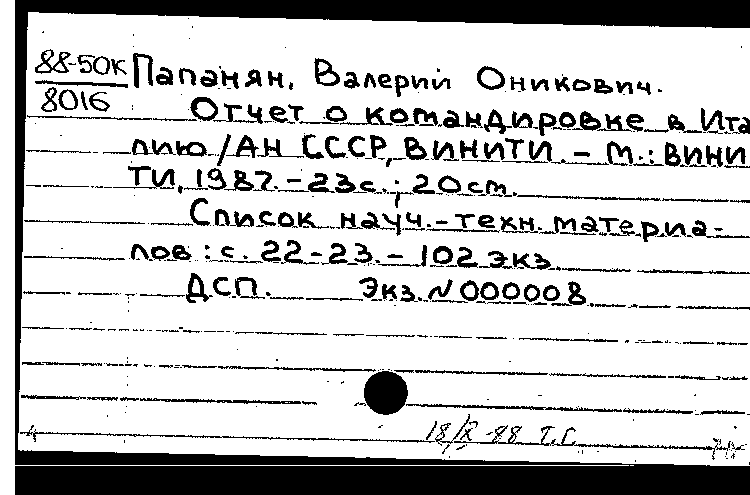 88-50К Папанян, Валерий Оникович.
8016 Отчет о командировке в Ита
лию / АН СССР, ВИНИТИ. - М.: ВИНИ
ТИ, 1987. - 23с.; 20см.
Список науч.-техн. материа-
лов : с. 22-23. - 102 экз
ДСП. Экз. N 000008
18/X -88